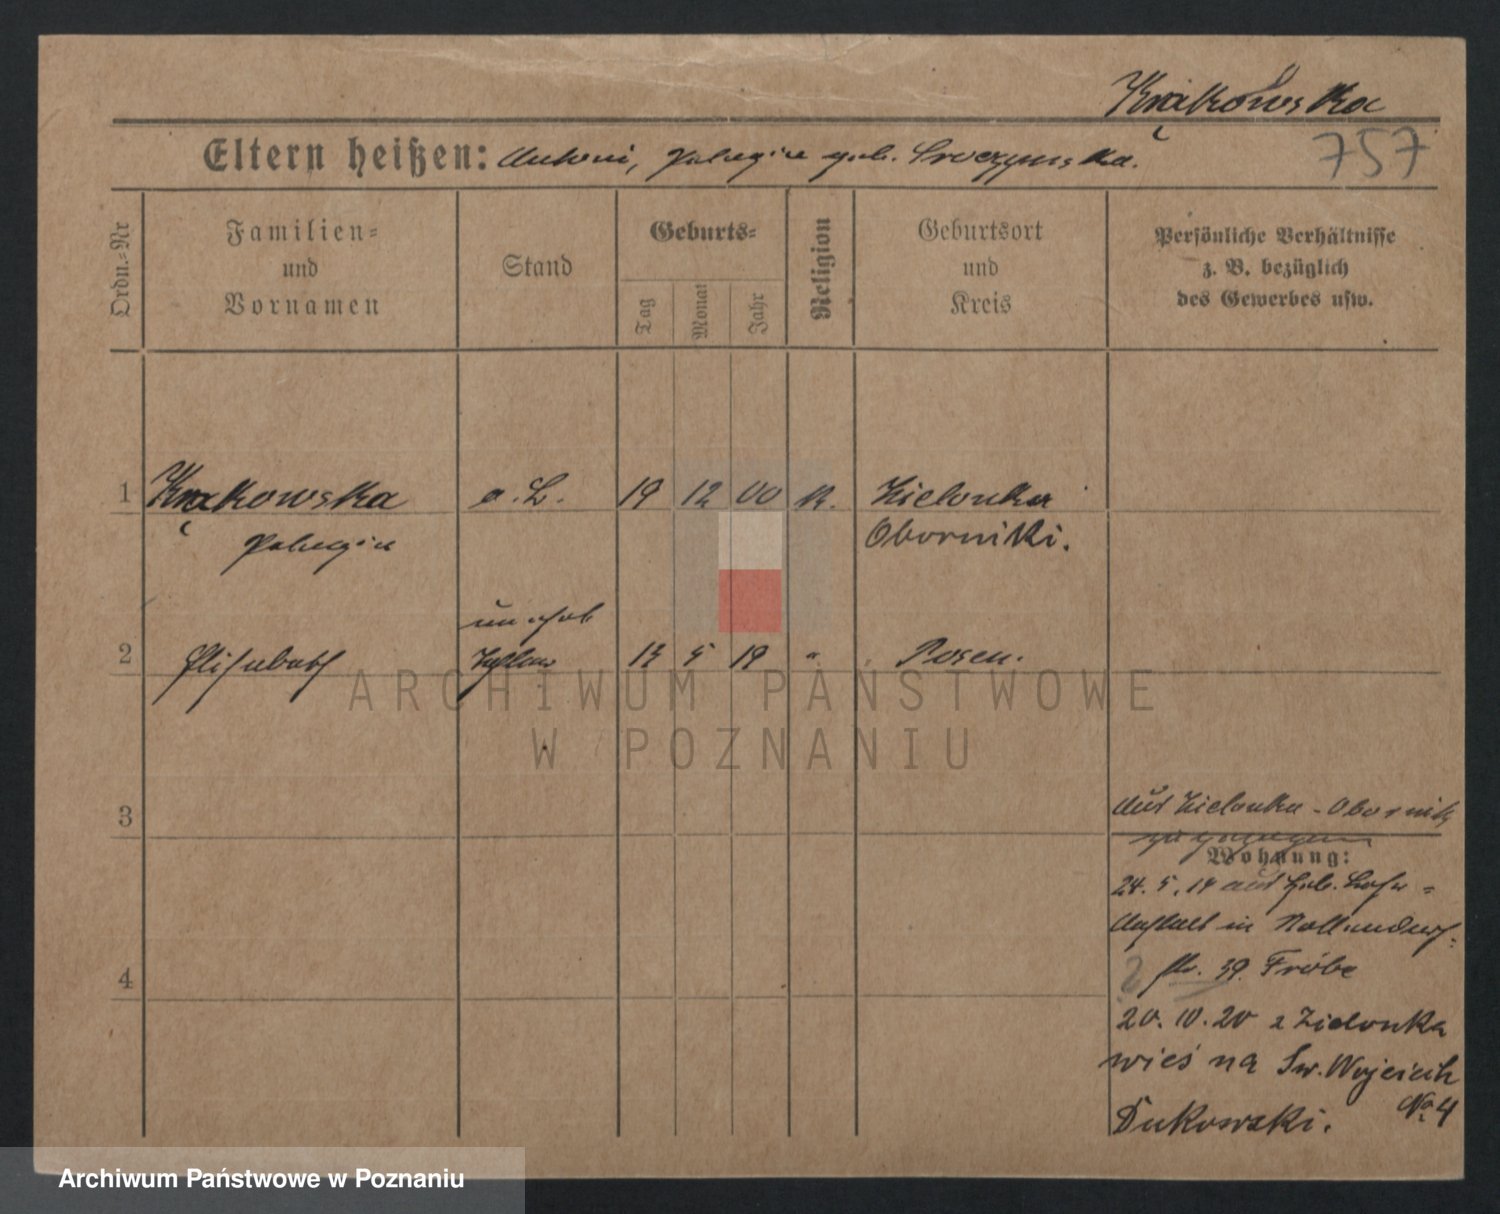 Krakowska
757
Eltern heißen: Antoni, Pelagia geb. Sroczynska.
Ordn.-Nr
Familien-
und
Vornamen
Stand
Geburts-
Tag
Monat
Jahr
Religion
Geburtsort
und
Kreis
Persönliche Verhältnisse
z. B. bezüglich
des Gewerbes usw.
1 Krakowska o. B. 19 12 00 K. Zielonka
Pelagia Oborniki.
unehel
2 Elisabeth Tochter 13 5 19 " Posen.
ARCHIWUM PAŃSTWOWE
W POZNANIU
3
aus Zielonka - Obornik
zugezogen
Wohnung:
24. 5. 19 aus Heb. Lehr-
Anstalt in Nollendorf-
4
str. 39. Fröbe
20. 10. 20 z Zielonka
wieś na Św. Wojciech
No 4
Dukowski.
Archiwum Państwowe w Poznaniu